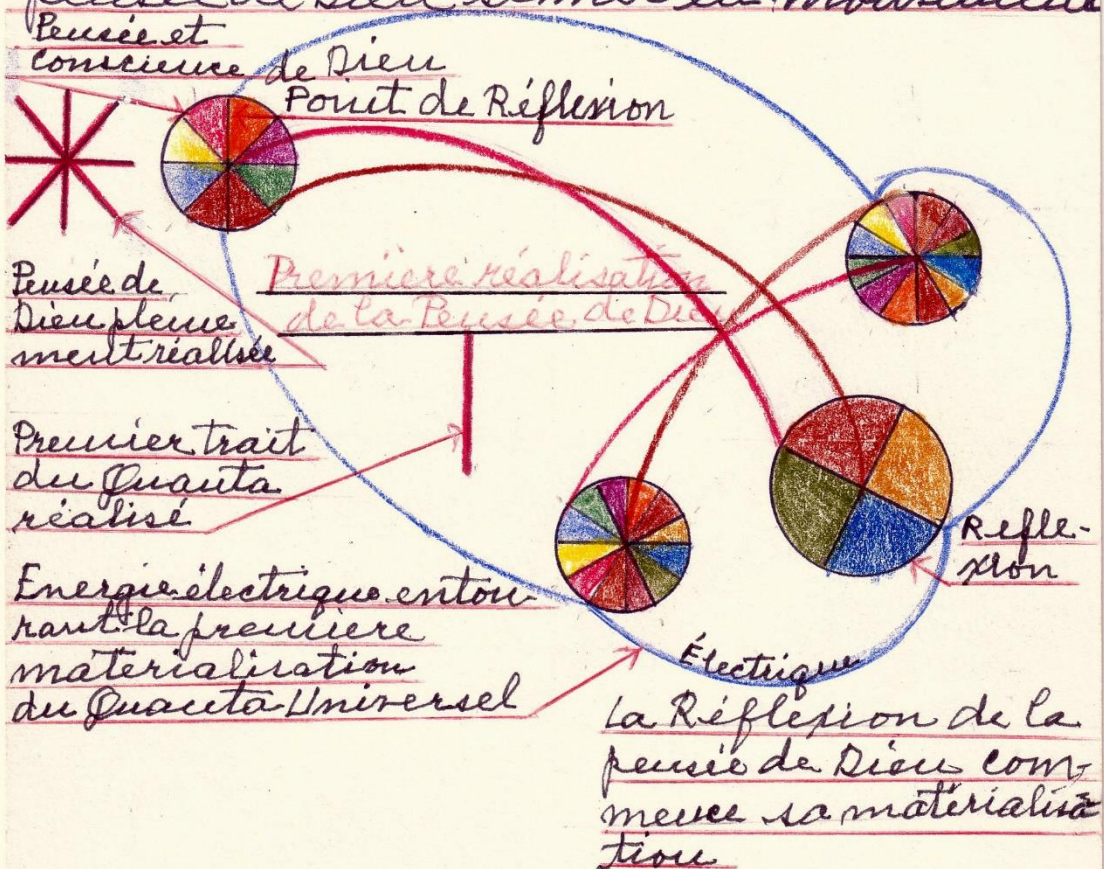 pensée de Dieu se met en mouvement
Pensée et
Conscience de Dieu
Point de Réflexion
Pensée de
Dieu pleine
ment réalisée
Première réalisation
de la Pensée de Dieu
Premier trait
du Quanta
réalisé
Energie électrique entou-
rant la première
matérialisation
du Quanta Universel
Refle-
xion
Électrique
La Réflexion de la
pensée de Dieu com-
mence sa matérialisa
tion